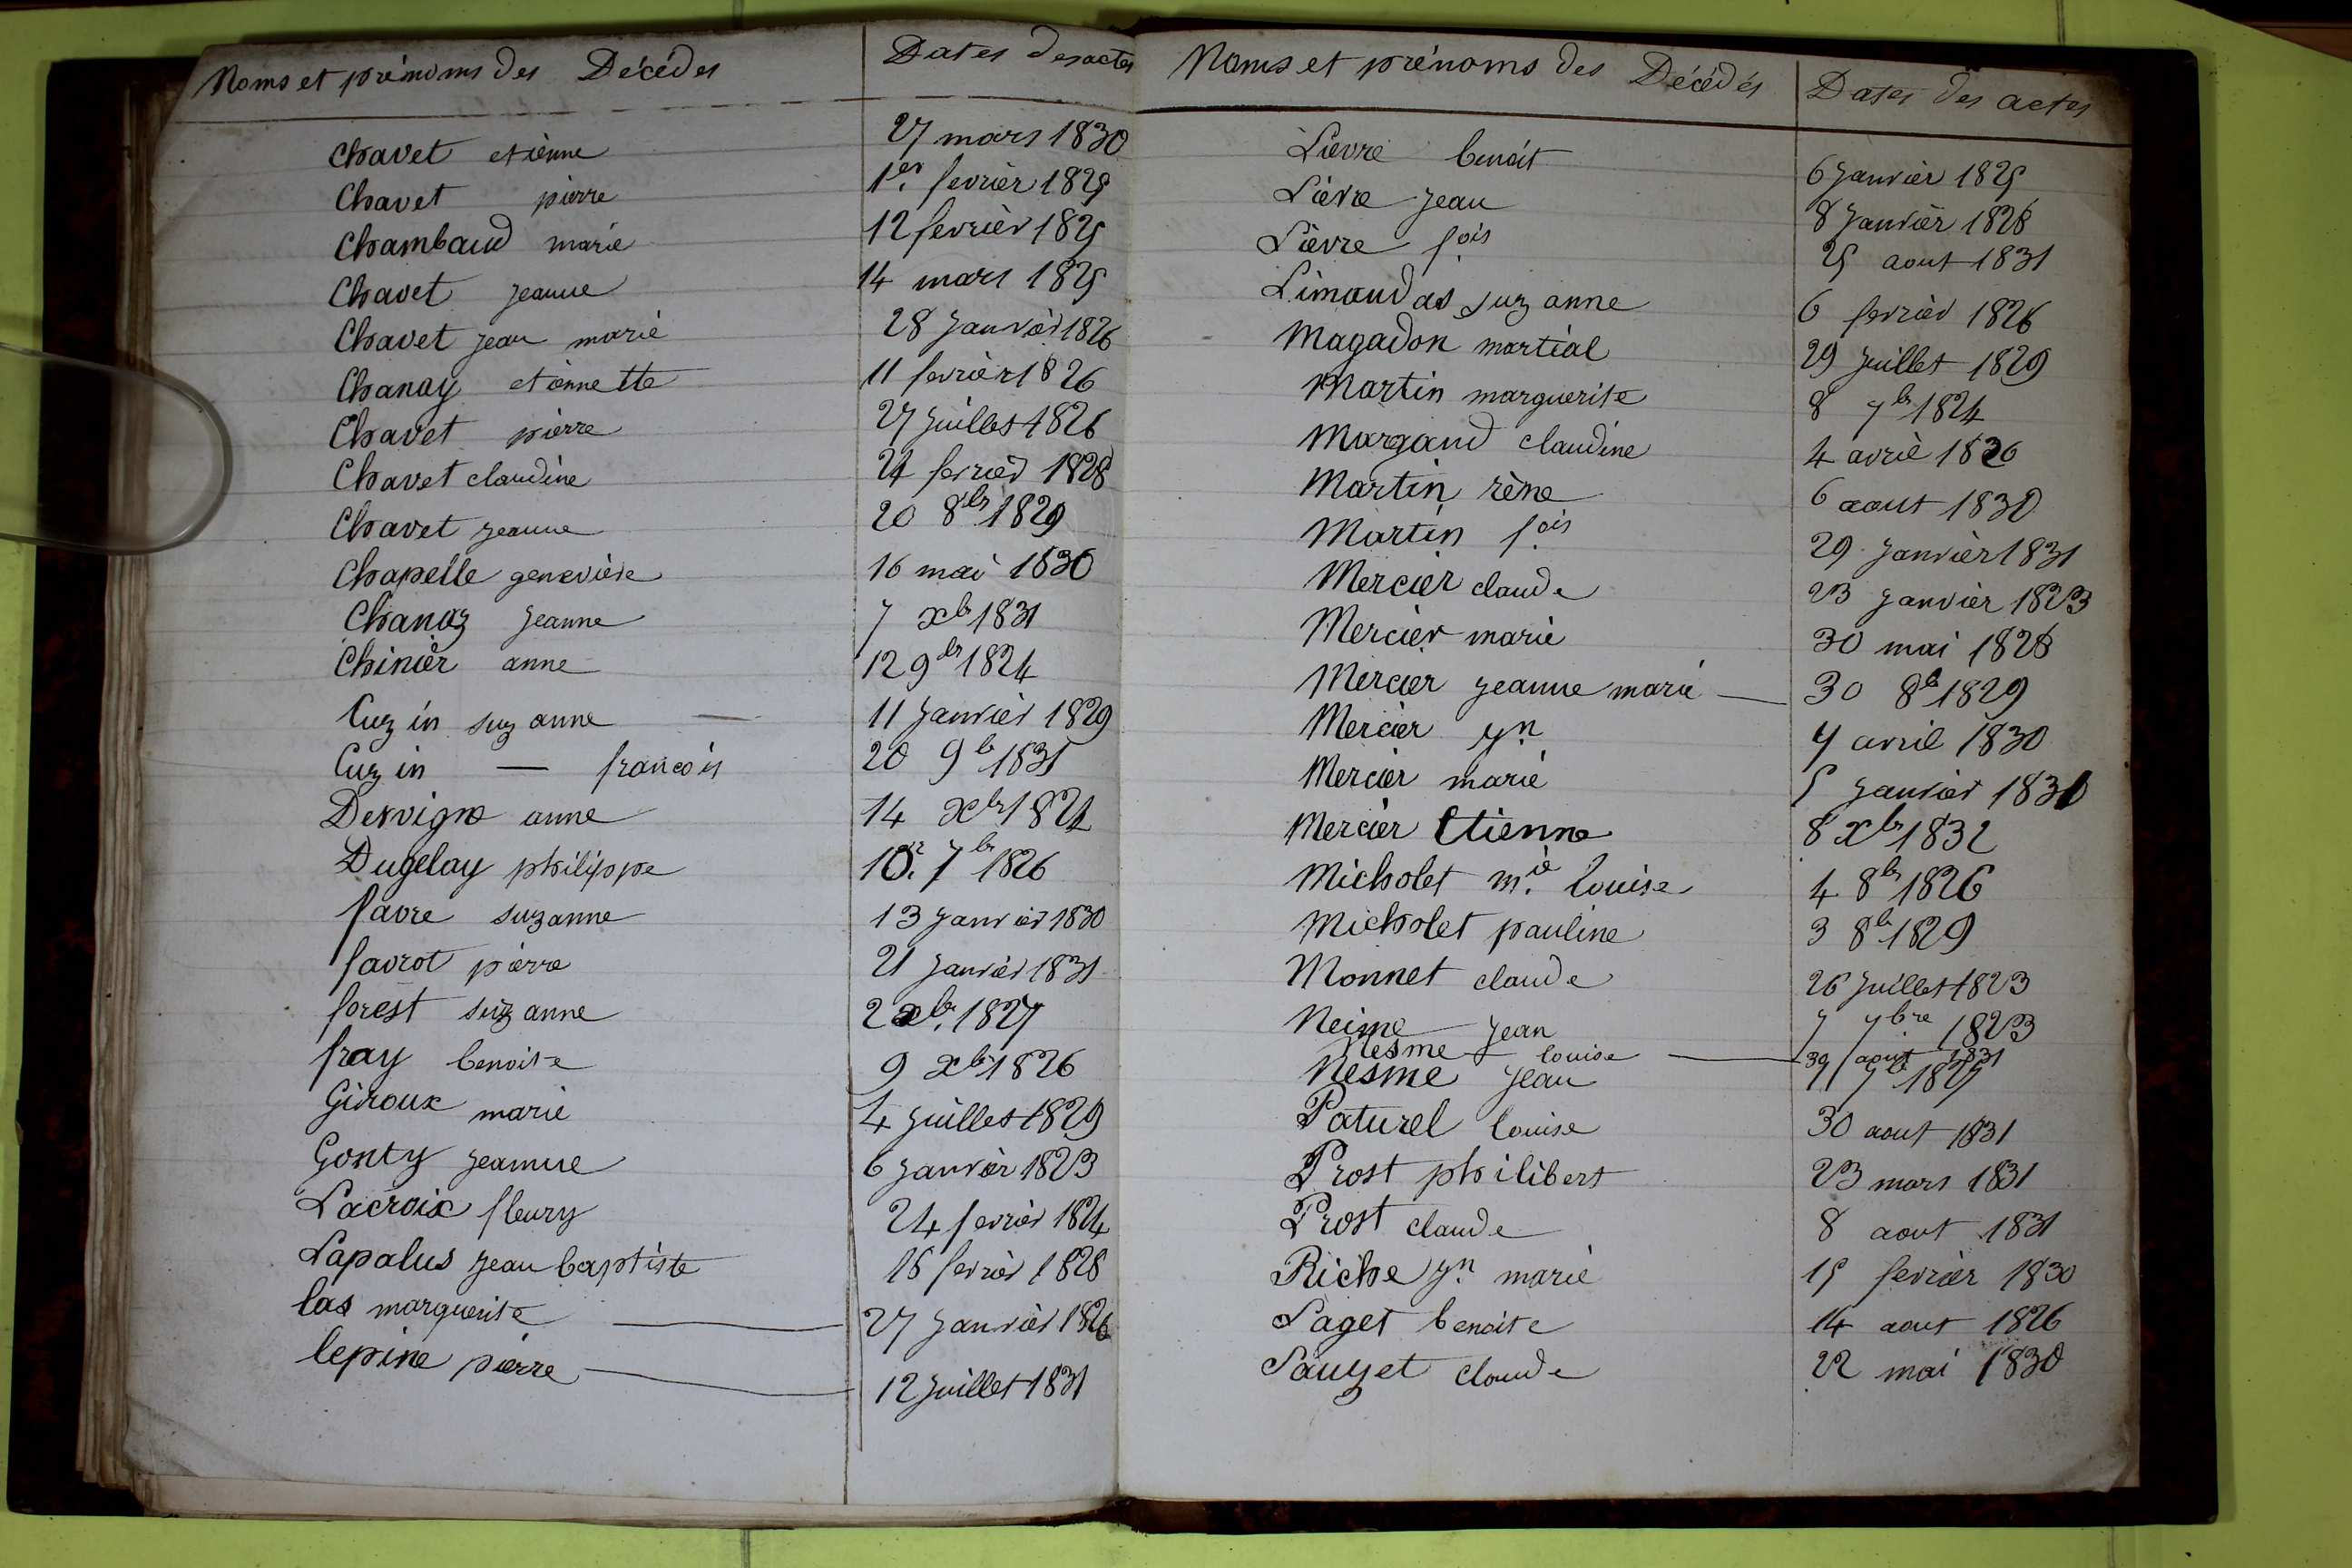 Noms et prénoms des Décédés Dates des actes
chavet etiénne 27 mars 1830
Chavet pierre 1er. fevrièr 1825
Chambaud marie 12 fevrièr 1825
Chavet jeanne 14 mars 1825
Chavet jean marie 28 janvièr 1826
Chanay etiennette 11 fevrièr 1826
Chavet pierre 27 juillet 1826
Chavet claudine 24 fevrièr 1828
Chavet jeanne 20 8br 1829
Chapelle geneviève 16 mai 1830
Chanaz jeanne 7 xbr 1831
Chinièr anne 12 9br 1824
Cuzin suzanne 11 janvièr 1829
Cuzin — francois 20 9br 1831
Dervigne anne 14 xbr 1824
Dugelay philippe 10. 7br 1826
favre suzanne 13 janvièr 1830
favrot pierre 21 janvièr 1831
forest suzanne 2 xbr. 1827
fray benoite 9 xbr 1826
Giroux marie 4 juillet 1829
Gonty jeanne 6 janvièr 1823
Lacroix fleury 24 fevrièr 1824
Lapalus jean baptiste 16 fevrièr 1828
las marguerite — 27 janvièr 1826
lepine pierre — 12 juillet 1831
Noms et prénoms des Décédés Dates des actes
Lievre benoit 6 janvièr 1825
Lièvre jean 8 janvièr 1828
Lièvre f.ois 25 aout 1831
Limandas suzanne 6 fevrièr 1826
Magadon martial 29 juillet 1829
Martin marguerite 8 7br 1824
Margand claudine 4 avril 1826
Martin rène 6 aout 1830
Martin f.ois 29 janvièr 1831
Mercier claude 23 janvièr 1823
Mercier marie 30 mai 1828
Mercier jeanne marie — 30 8br 1829
Mercier jn. 7 avril 1830
Mercier marie 5 janvièr 1831
Mercièr Etienne 8 xbr 1832
Micholet m.ie louise 4 8br 1826
Micholet pauline 3 8br 1829
Monnet claude 26 juillet 1823
Neime jean 7 7bre 1823
Nesme louise — aout 1831
Nesme jean 7br 1827
Paturel louise 30 aout 1831
Prost philibert 23 mars 1831
Prost claude 8 aout 1831
Riche jn. marie 15 fevrièr 1830
Saget benoite 14 aout 1826
Sauzet claude 22 mai 1830